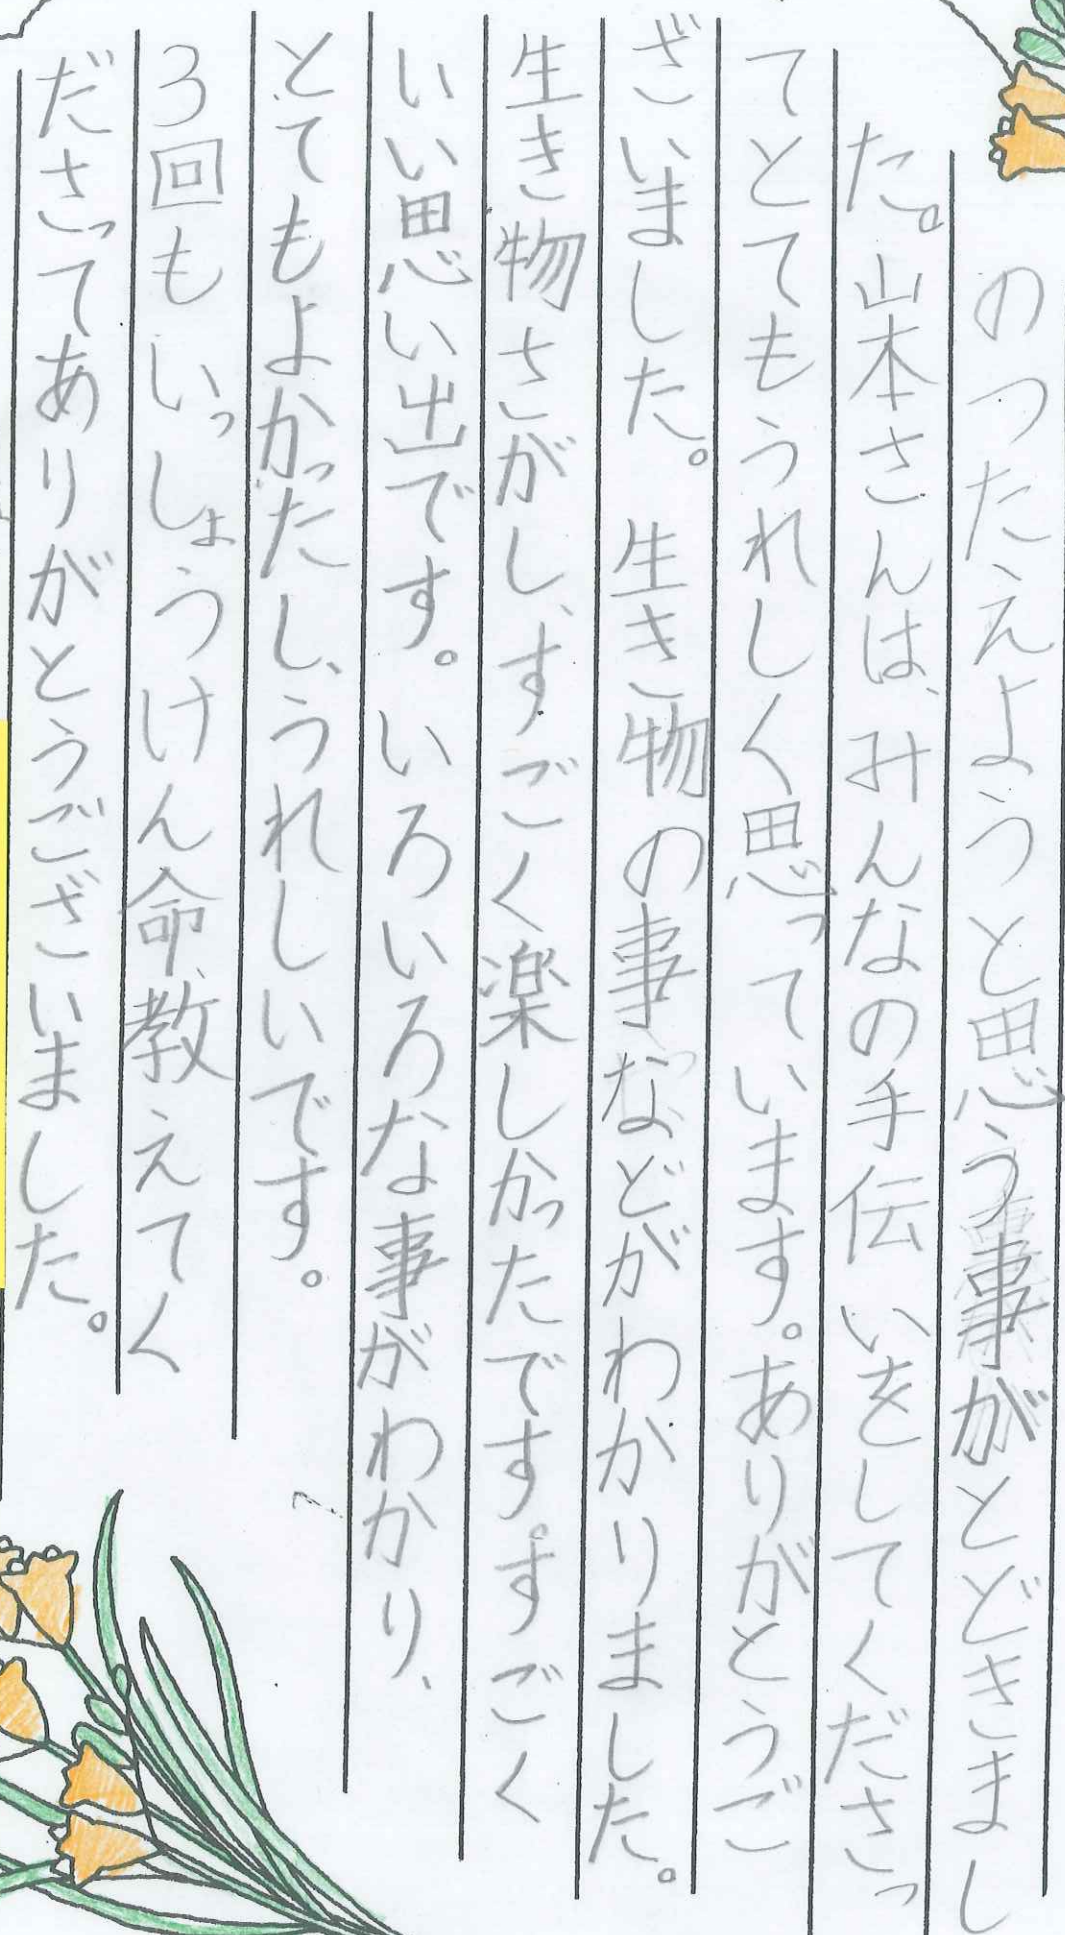 のつたえようと思う事がとどきまし
た。山本さんは、みんなの手伝いをしてくださっ
てとてもうれしく思っています。ありがとうご
ざいました。生き物の事などがわかりました。
生き物さがし、すごく楽しかったです。すごく
いい思い出です。いろいろな事がわかり、
とてもよかったし、うれしいです。
3回もいっしょうけん命、教えてく
ださってありがとうございました。